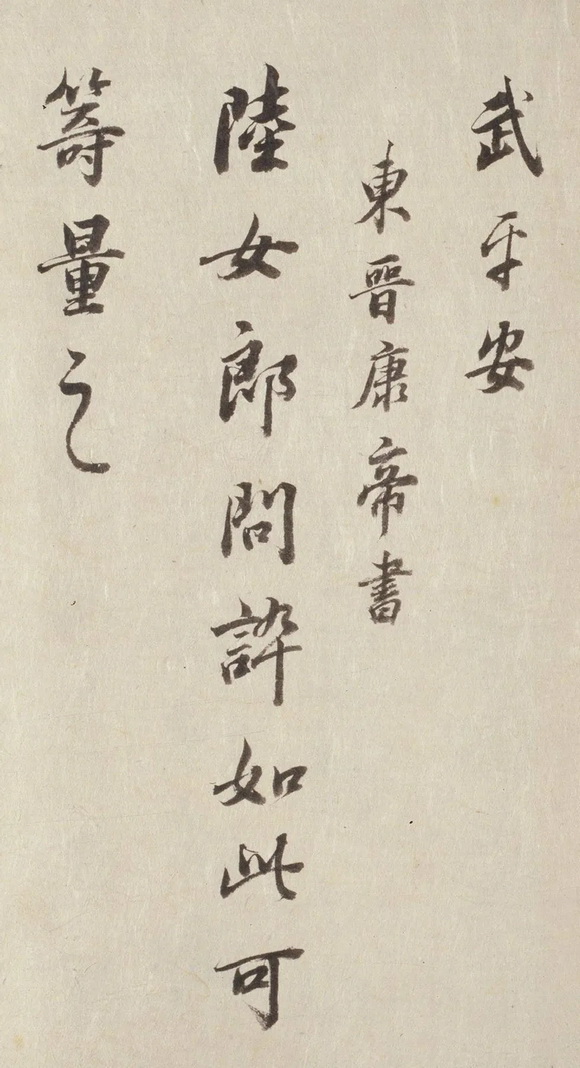 武平安
東晉康帝書
陸女郎問訹如此可
籌量之